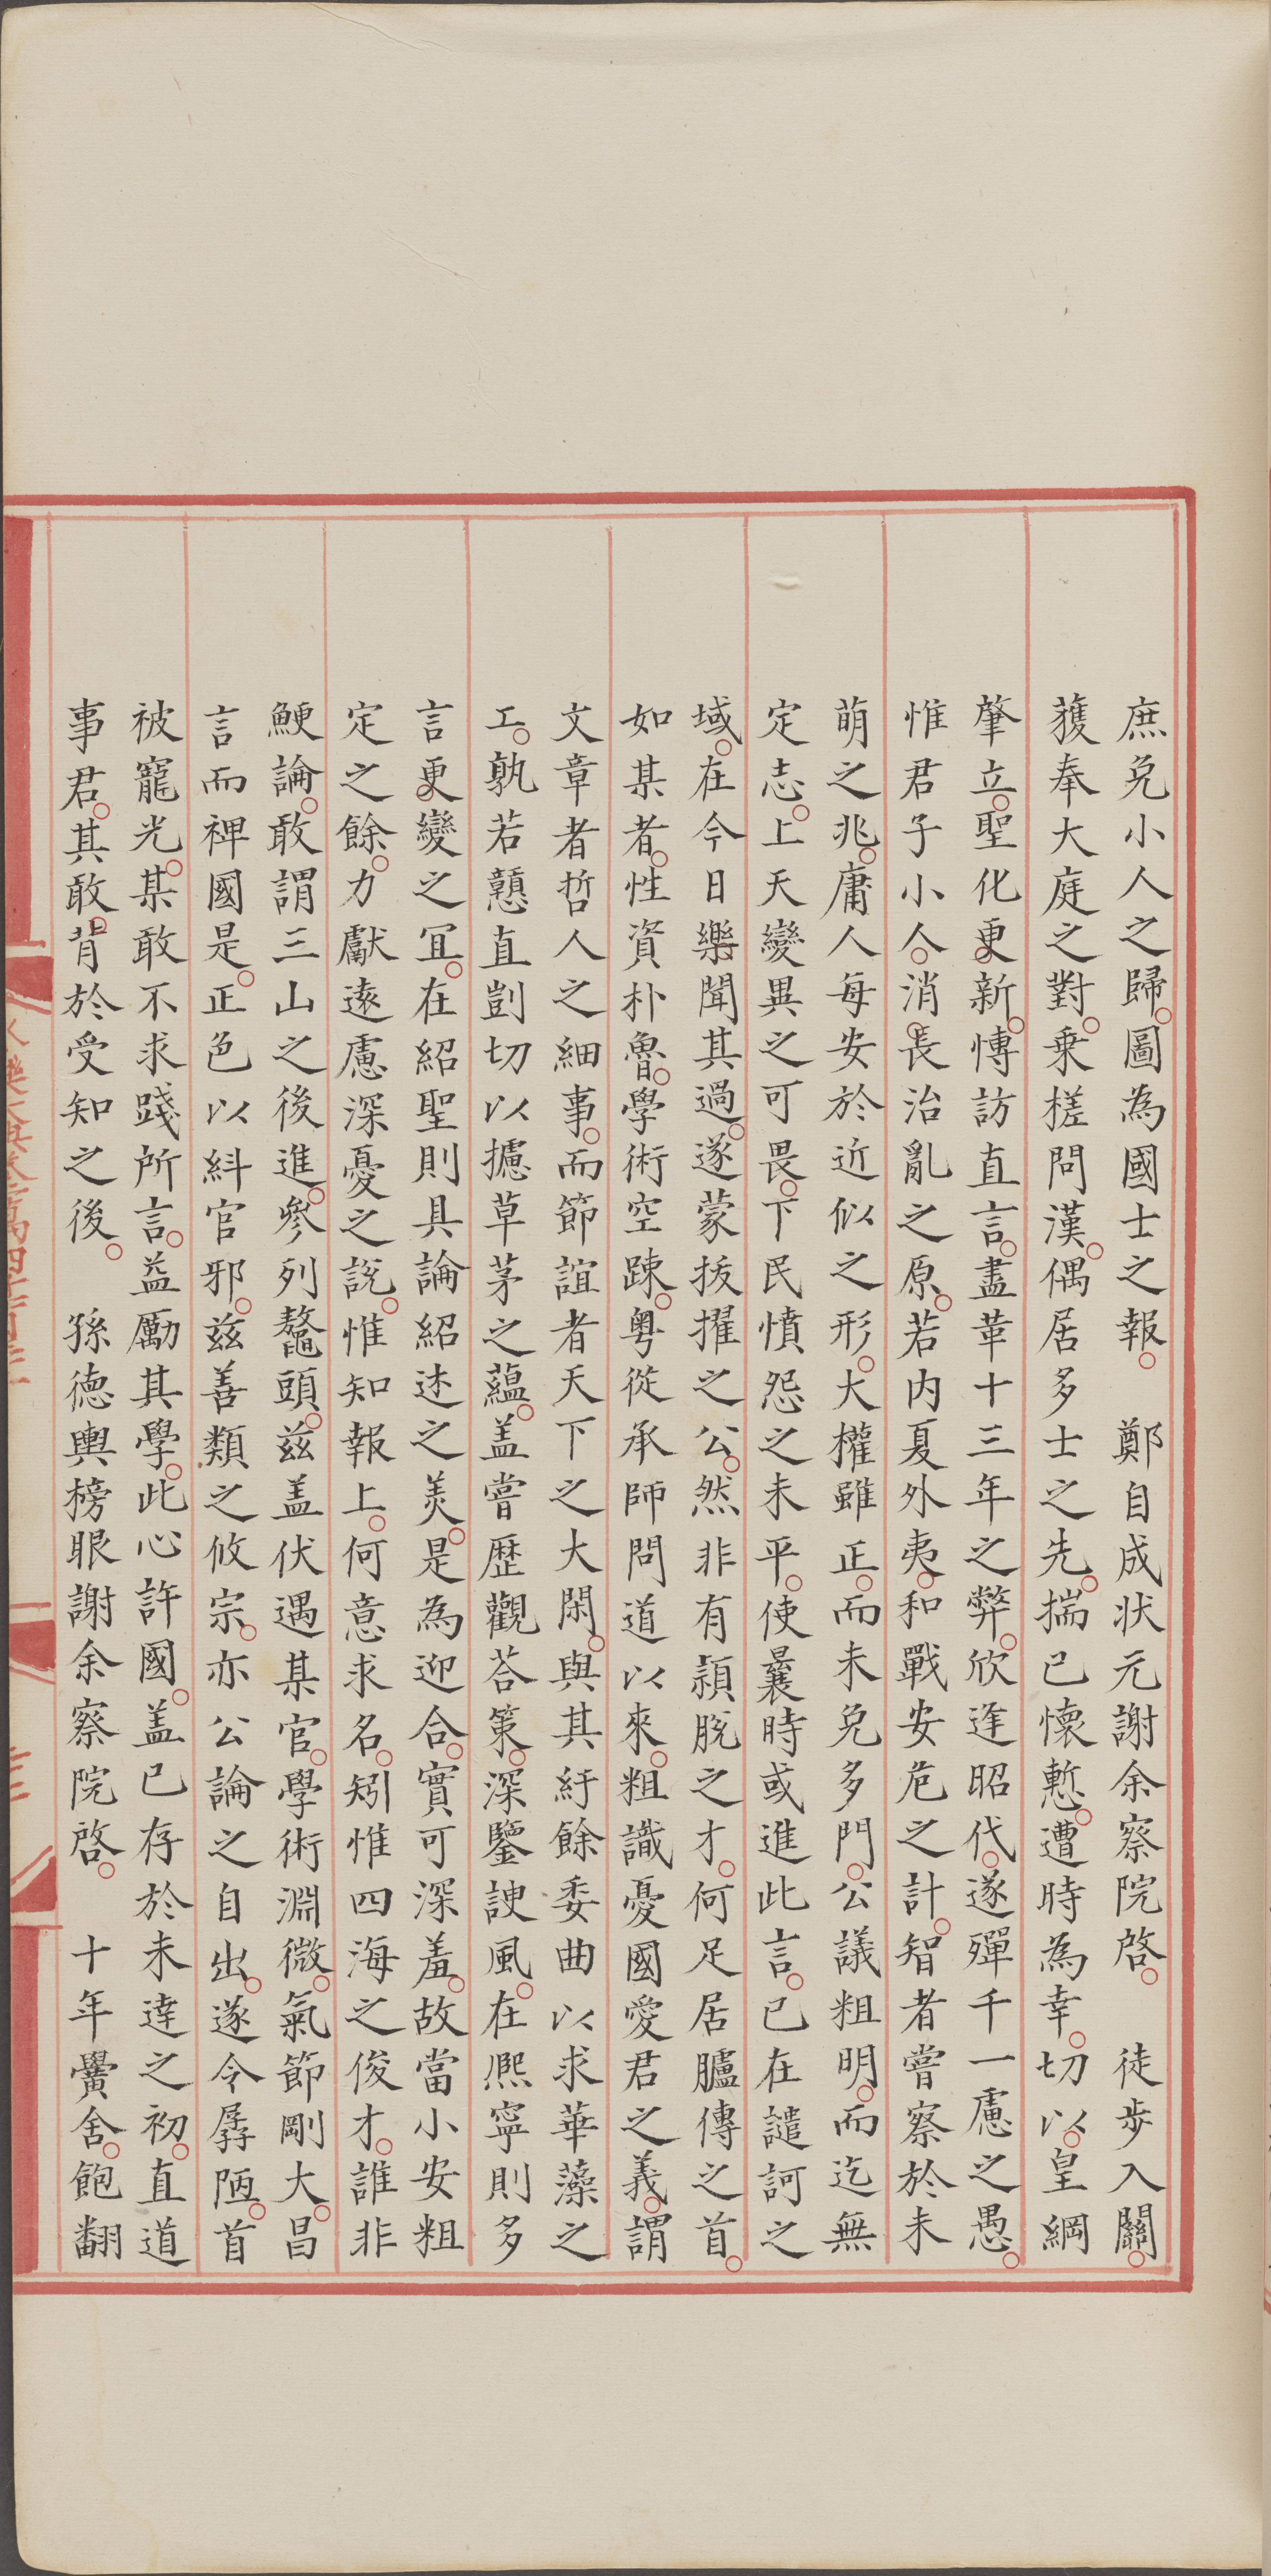 庶免小人之歸。圖為國士之報。　鄭自成狀元謝余察院啓。　徒步入關。
獲奉大庭之對。乗槎問漢。偶居多士之先。揣已懷慙。遭時為幸。切以。皇綱
肇立。聖化更新。博訪直言。盡革十三年之弊。欣逢昭代。遂殫千一慮之愚。
惟君子小人。消長治亂之原。若内夏外夷。和戰安危之計。智者嘗察於未
萌之兆。庸人每安於近似之形。大權雖正。而未免多門。公議粗明。而迄無
定志。上天變異之可畏。下民憤怨之未平。使曩時或進此言。已在譴訶之
域。在今日樂聞其過。遂蒙拔擢之公。然非有頴脫之才。何足居臚傳之首。
如某者。性資朴魯。學術空踈。粵從承師問道以來。粗識憂國愛君之義。謂
文章者哲人之細事。而節誼者天下之大閑。與其紆餘委曲以求華藻之
工。孰若戇直剴切以攄草茅之蘊。盖嘗歷觀荅策。深鑒諛風。在熈寧則多
言更變之冝。在紹聖則具論紹述之美。是為迎合。實可深羞。故當小安粗
定之餘。力獻遠慮深憂之說。惟知報上。何意求名。矧惟四海之俊才。誰非
鯁論。敢謂三山之後進。參列鼇頭。兹盖伏遇某官。學術淵微。氣節剛大。昌
言而裨國是。正色以糾官邪。兹善類之攸宗。亦公論之自出。遂令孱陋。首
被寵光。某敢不求踐所言。益勵其學。此心許國。盖已存於未逹之初。直道
事君。其敢背於受知之後。　孫德輿榜眼謝余察院啓。　十年黌舍。飽翻